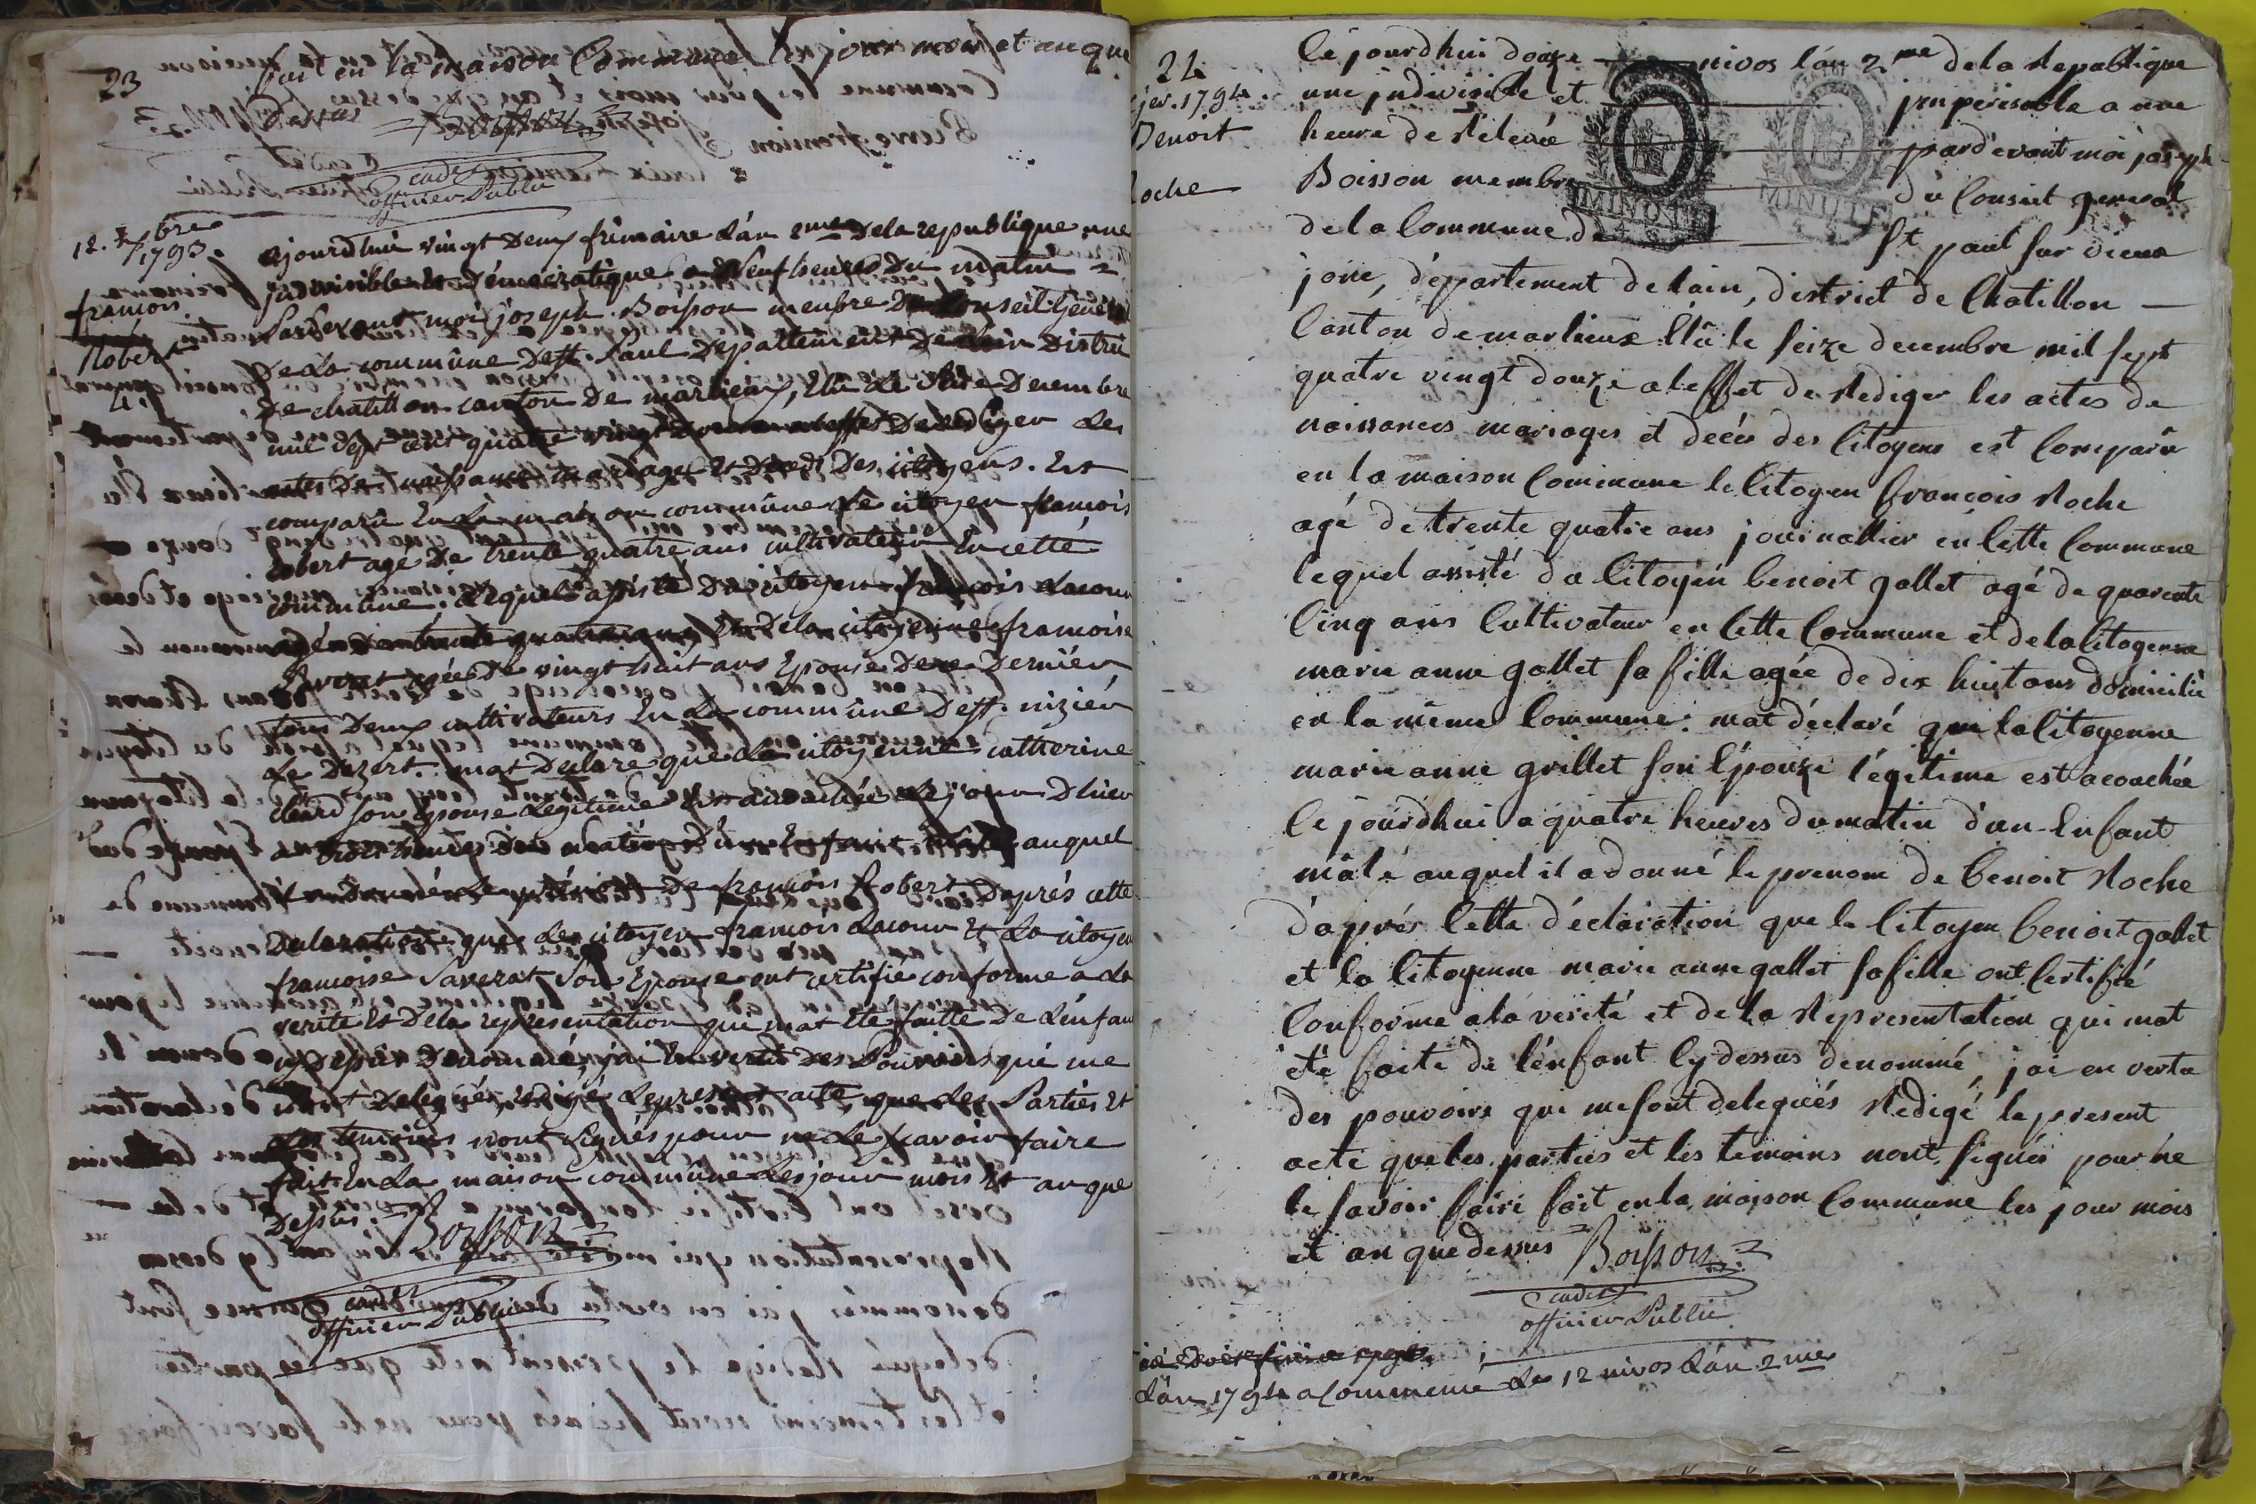 23
fait en la maison Commune les jour mois et an que
dessus Boisson
cadet
officier Public
12. Xbre
1793.
françois
Robert
4.
ajourdhui vingt Deux frimaire L'an 2me De la republique une
indivisible et Démocratique a Neuf heures Du matin
Pardevant moi joseph Boisson menbre Du Conseil Géneral
De la commune De st. Paul Departement De Lain Distric
De chatillon canton De marlieux, Elu Le seize Decembre
mil sept cent quatre vingt Douze a leffet De rediger Les
actes De naissance mariage et Décés Des citoyens. Est
comparû En La maison commune Le citoyen françois
Robert agé De trente quatre ans cultivateur En cette
commune. Lequel assisté Du citoyen françois Lacour
agé De trente quatre ans et De la citoyenne françoise
agée De vingt huit ans Epouse De ce Dernier
tous Deux cultivateurs En La commune De st. nizier
Le Dezert. mat Declaré que La citoyenne catherine
son Epouse Legitime Est acouchée Le jour Dhier
a trois heures Du matin D'un Enfant male auquel
il a Donné Le prénom De françois Robert Daprés cette
Declaration que Le citoyen françois Lacour Et La citoyen
françoise Saverat Son Epouse ont certifié conforme a La
verité Et De la representation qui mat Eté faitte De L'enfan
cy Dessus Denommé, j'ai En vertu Des Pouvoirs qui me
sont Delegués redigé Le present acte que Les Parties Et
Les temoins nont signés pour ne Le savoir faire
fait En La maison commune Les jour mois Et an que
Dessus. Boisson
cadet
officier Public
24
jer. 1794.
Benoit
Roche
Ce jourdhui douze nivos l'an 2me de la Republique
une indivisible et imperissable a une
heure de Relevée pardevant moi joseph
Boisson membre du Conseil general
MINUTE
MINUTE
de la Commune de St paul sur dieux
joue, département de lain, district de Chatillon
Canton de marlieux Elû le seize decembre mil sept
quatre vingt douze a leffet de Rediger les actes de
naissances mariages et decés des Citoyens est Comparû
en la maison Commune le Citoyen françois Roche
agé de trente quatre ans journallier en Cette Commune
lequel assisté du Citoyen benoit gallet agé de quarente
Cinq ans Cultivateur en Cette Commune et de la Citoyenne
marie anne gallet sa fille agée de dix huit ans domicilié
en la même Commune: mat déclaré que la Citoyenne
marie anne grillet son Épouze légitime est acouchée
Ce jourdhui a quatre heures du matin d'un Enfant
mâle auquel il a donné le prenom de benoit Roche
d'aprés Cette déclaration que le Citoyen benoit gallet
et la Citoyenne marie anne gallet sa fille ont Certifié
Conforme a la verité et de la Representation qui mat
été faite de l'énfant Cy dessus denommé, jai en vertu
des pouvoirs qui me sont delegués Redigé le present
acte que les parties et les temoins nont signés pour ne
le savoir faire fait en la maison Commune les jour mois
et an que dessus Boisson
cadet
officier Public
L'an 1794 a Commencé Le 12 nivos L'an 2me